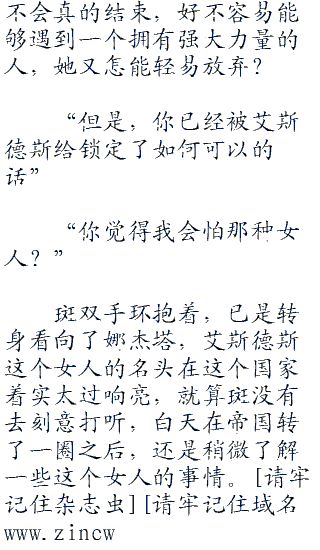 不会真的结束，好不容易能
够遇到一个拥有强大力量的
人，她又怎能轻易放弃？
“但是，你已经被艾斯
德斯给锁定了如何可以的
话”
“你觉得我会怕那种女
人？”
斑双手环抱着，已是转
身看向了娜杰塔，艾斯德斯
这个女人的名头在这个国家
着实太过响亮，就算斑没有
去刻意打听，白天在帝国转
了一圈之后，还是稍微了解
一些这个女人的事情。[请牢
记住杂志虫][请牢记住域名
www.zincw